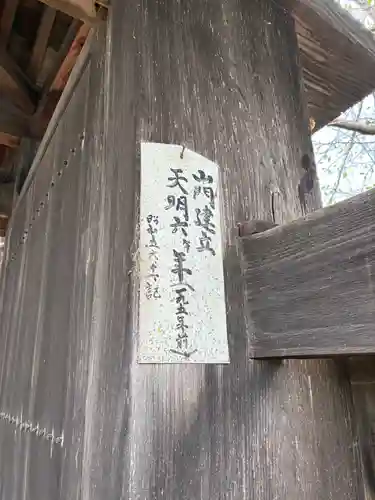 山門建立
天明六年
(一九五年前)
昭和五六年記